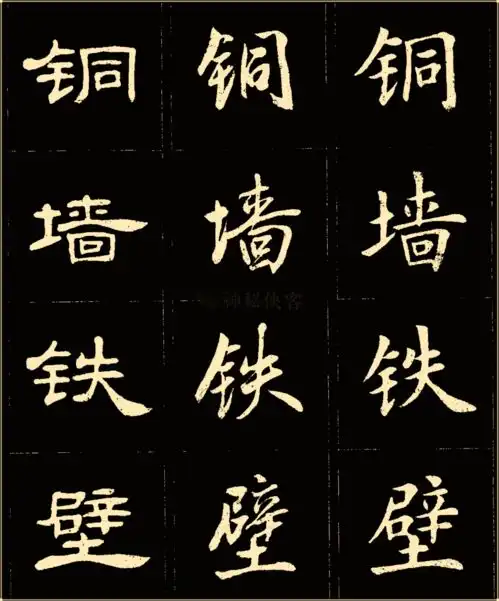 铜铜铜
墙墙墙
铁铁铁
壁壁壁
神秘侠客